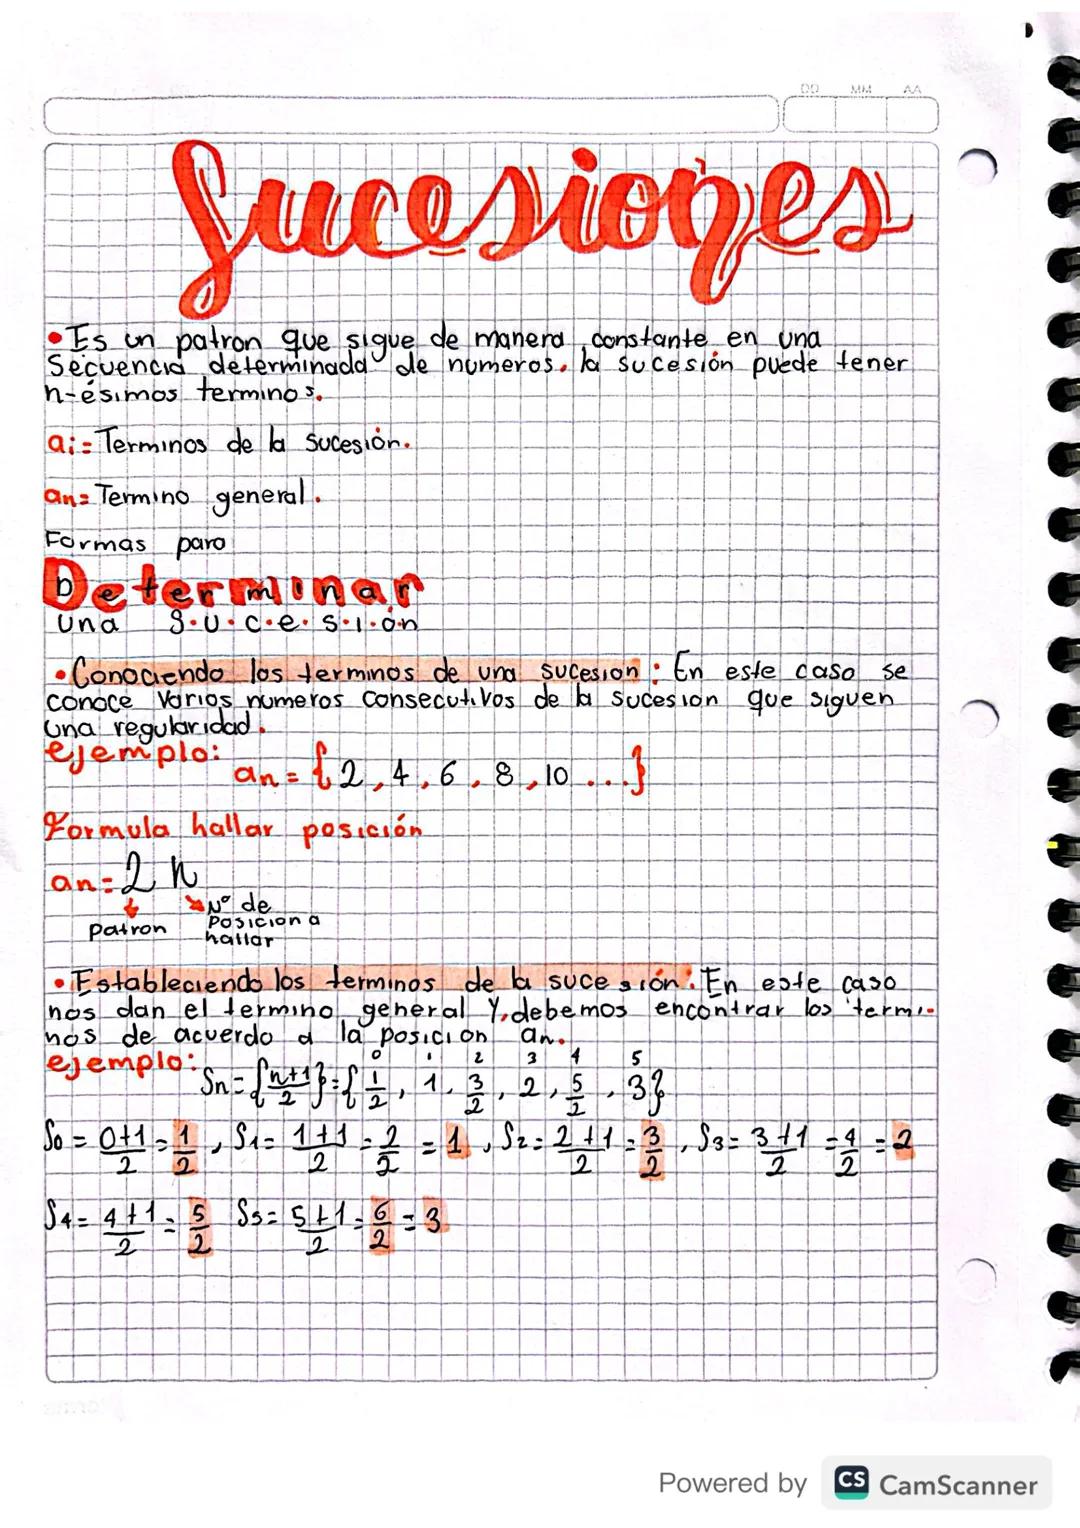 DD MM AA
Sucesiones
• Es un patron que sigue de manera constante en una
Secuencia determinada de numeros. la sucesión puede tener
n-ésimos terminos.
ai= Terminos de la sucesión.
an= Termino general.
Formas para
Determinar
una S.u.c.e.s.i.ón
• Conociendo los terminos de una sucesion: En este caso se
conoce varios numeros consecutivos de la sucesion que siguen
una regularidad.
ejemplo:
an = {2, 4, 6, 8, 10 ...}
Formula hallar posición
an= 2 n
patron
Nº de
Posicion a
hallar
• Estableciendo los terminos de la sucesión: En este caso
nos dan el termino general y, debemos encontrar los termi-
nos de acuerdo a la posicion an.
ejemplo:
0 1 2 3 4 5
Sn= {n+1/2} = {1/2, 1, 3/2, 2, 5/2, 3}
S0 = 0+1/2 = 1/2, S1= 1+1/2 = 2/2 = 1, S2= 2+1/2 = 3/2, S3= 3+1/2 = 4/2 = 2
S4= 4+1/2 = 5/2 S5= 5+1/2 = 6/2 = 3
Powered by CS CamScanner